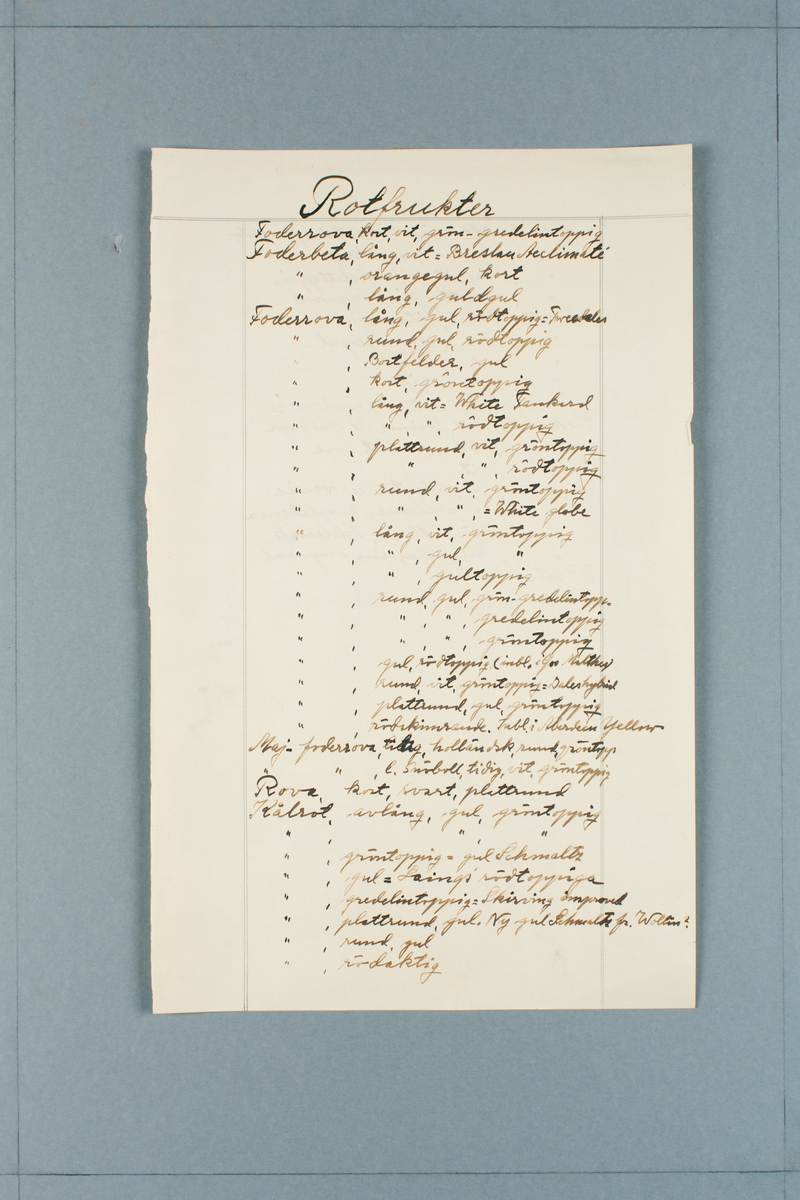 Rotfrukter
Foderrova, kort, vit, grön-gredelintoppig
Foderbeta, lång, vit = Breslau Acclimaté
" , orangegul, kort
" , lång, guldgul
Foderrova, lång, gul, rödtoppig = Tweedales
" , rund, gul, rödtoppig
" , Bortfelder, gul
" , kort, gröntoppig
" , lång, vit = White Tankard
" , " , " , rödtoppig
" , plattrund, vit, gröntoppig
" , " , " , rödtoppig
" , rund, vit, gröntoppig
" , " , " , = White globe
" , lång, vit, gröntoppig
" , " , gul, "
" , " , gultoppig
" , rund, gul, grön-gredelintopp.
" , " , " , gredelintoppig
" , " , " , gröntoppig
" , gul, rödtoppig (inbl. i
" , rund, vit, gröntoppig = Daleshybrid
" , plattrund, gul, gröntoppig
" , rödskimrande. Inbl. i Aberdeen Yellow
Maj-foderrova, tidig, holländsk, rund, gröntopp
" " , l. Snöboll, tidig, vit, gröntoppig
Rova, kort, svart, plattrund
Kålrot, avlång, gul, gröntoppig
" , " , "
" , gröntoppig = gul Schmaltz
" , gul = Laings rödtoppiga
" , gredelintoppig = Skirving improved
" , plattrund, gul. Ny gul Schmaltz fr.
" , rund, gul
" , rödaktig